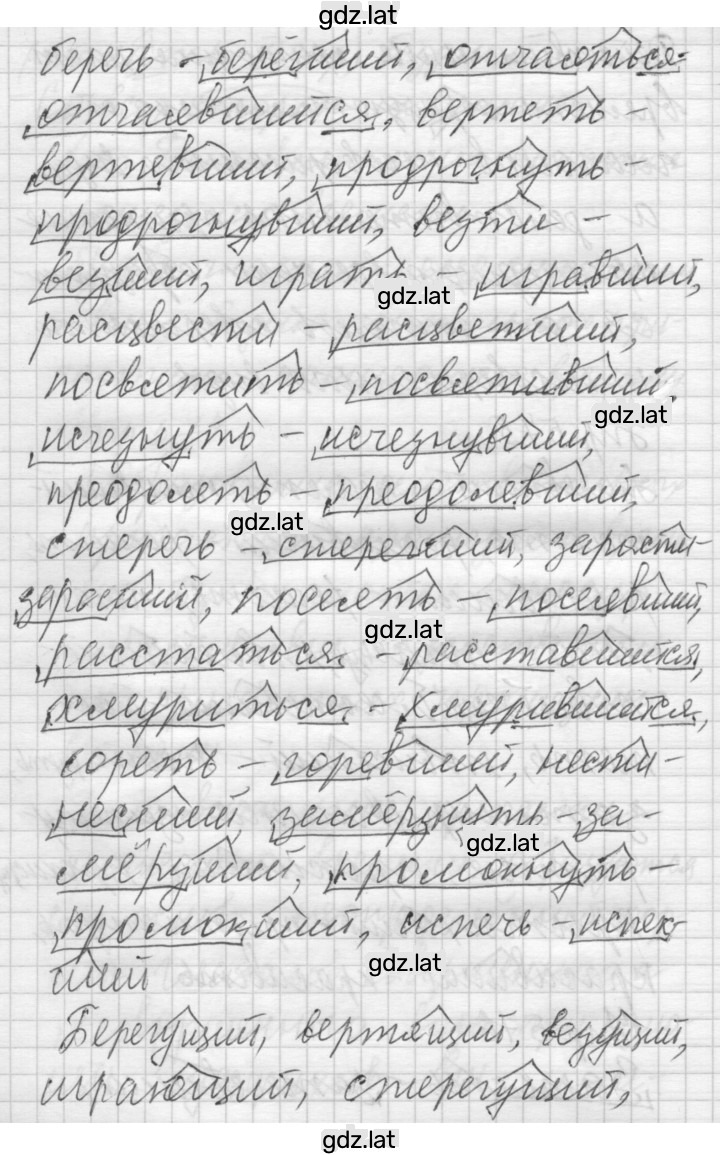 gdz.lat
беречь - берёгший, отчаяться-
отчаявшийся, вертеть -
вертевший, продрогнуть -
продрогнувший, везти -
везший, играть - игравший,
gdz.lat
расцвести - расцветший,
посвятить - посвятивший,
gdz.lat
исчезнуть - исчезнувший,
преодолеть - преодолевший,
gdz.lat
стеречь - стерегший, зарасти-
заросший, посеять - посеявший,
gdz.lat
расстаться - расставшийся,
хмуриться - хмурившийся,
гореть - горевший, нести-
несший, замёрзнуть - за-
gdz.lat
мёрзший, промокнуть -
промокший, испечь - испек-
gdz.lat
ший
Берегущий, вертящий, везущий,
играющий, стерегущий,
gdz.lat